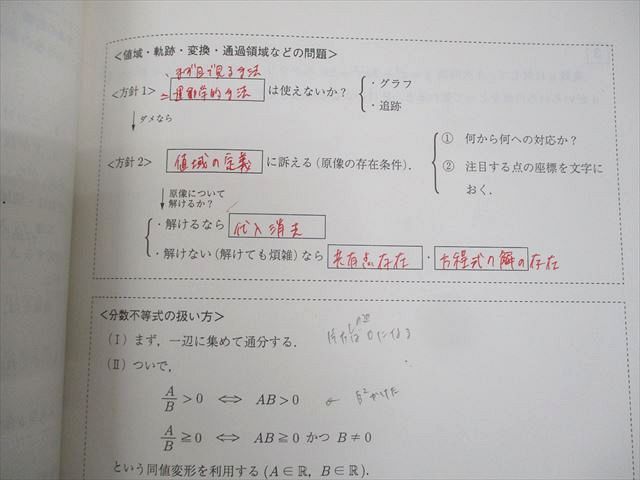 <値域・軌跡・変換・通過領域などの問題>
まず目で見る手法
<方針1> =運動学的手法 は使えないか? ・グラフ
・追跡
↓ダメなら
<方針2> 値域の定義 に訴える(原像の存在条件).
① 何から何への対応か?
② 注目する点の座標を文字に
おく.
↓原像について
解けるか?
・解けるなら 代入消去
・解けない(解けても煩雑)なら 共有点存在 ・ 方程式の解の存在
<分数不等式の扱い方>
(Ⅰ) まず,一辺に集めて通分する.
になる
(Ⅱ) ついで,
A/B > 0 ⇔ AB > 0 ← B²かけた
A/B ≧ 0 ⇔ AB ≧ 0 かつ B ≠ 0
という同値変形を利用する (A∈ℝ, B∈ℝ).